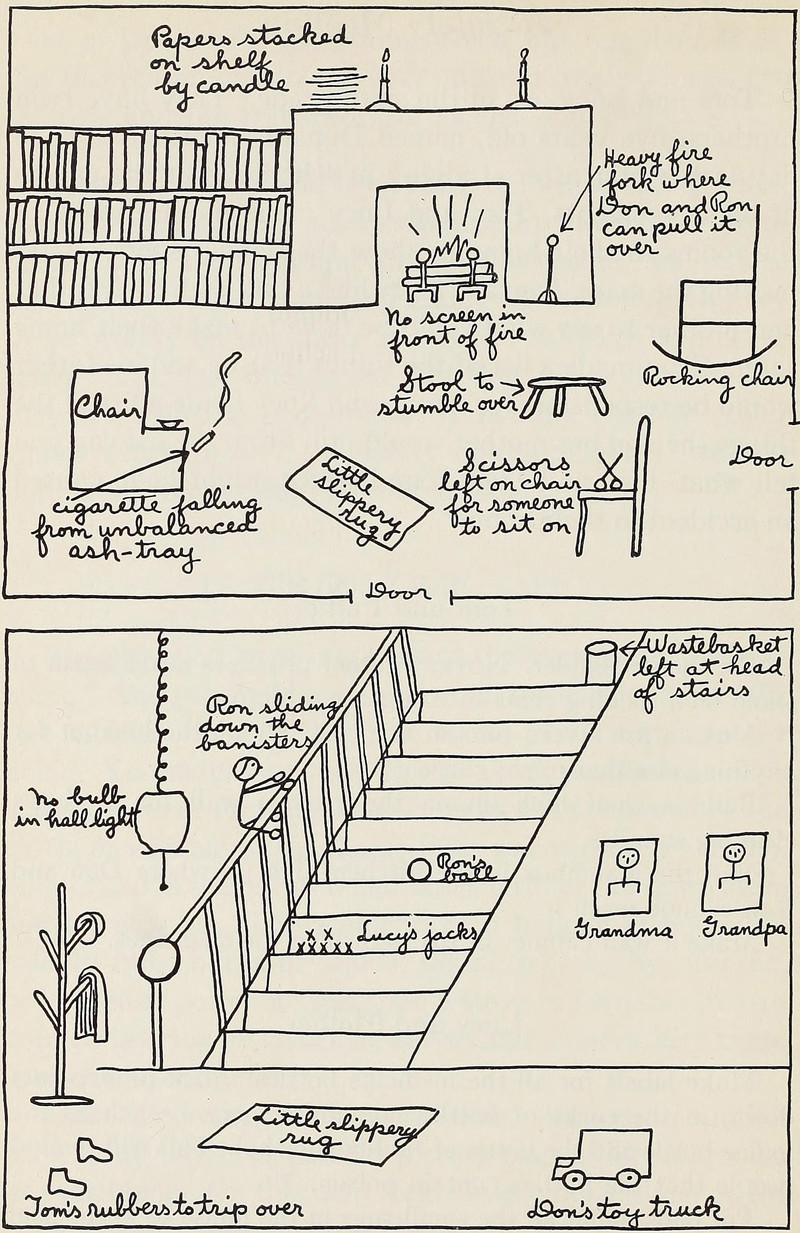 Papers stacked
on shelf
by candle
Heavy fire
fork where
Don and Ron
can pull it
over
No screen in
front of fire
Rocking chair
Stool to
stumble over
Chair
Door
Little
slippery
rug
Scissors
left on chair
for someone
to sit on
cigarette falling
from unbalanced
ash-tray
Door
Wastebasket
left at head
of stairs
Ron sliding
down the
banisters
No bulb
in hall light
Ron's
ball
Grandma
Grandpa
Lucy's jacks
Little slippery
rug
Tom's rubbers to trip over
Don's toy truck